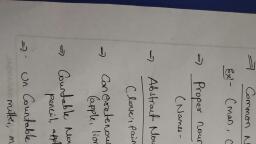 ⇒ Common N
Ex- (man, C
→ Proper noun
(Names-
→ Abstract Nou
(love, pain
→ Concrete nou
(apple, lion
⇒ Countable Nou
pencil, app
⇒ Un Countable